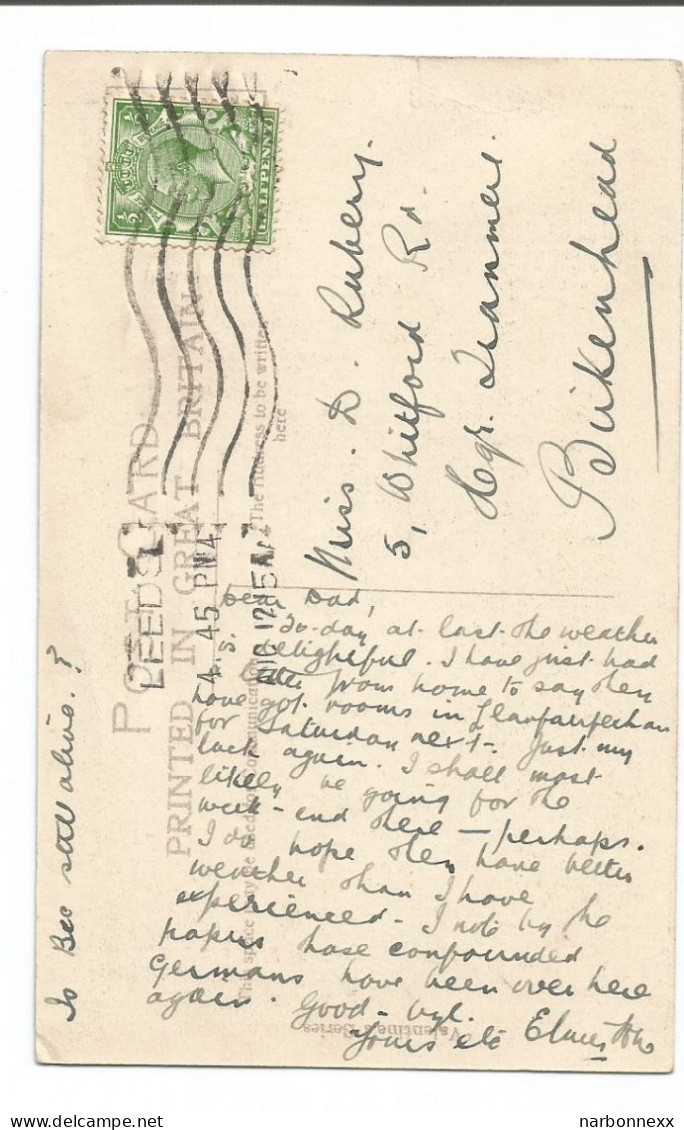 POST CARD
PRINTED IN GREAT BRITAIN
The Address to be written
here
Valentine's Series
HALFPENNY
LEEDS
4. 45 PM
AUG 12 15
Miss. D. Rubery.
5, Whitford Rd.
Hgr. Tranmere.
Birkenhead
Dear Dad,
To-day at last the weather
is delightful. I have just had
letter from home to say they
have got rooms in Llanfairfechan
for Saturday next. Just my
luck again. I shall most
likely be going for the
week-end there - perhaps.
I do hope they have better
weather than I have
experienced - I note by the
papers those confounded
Germans have been over here
again. Good-bye.
Yours etc
Is Bee still alive.?
narbonnexx